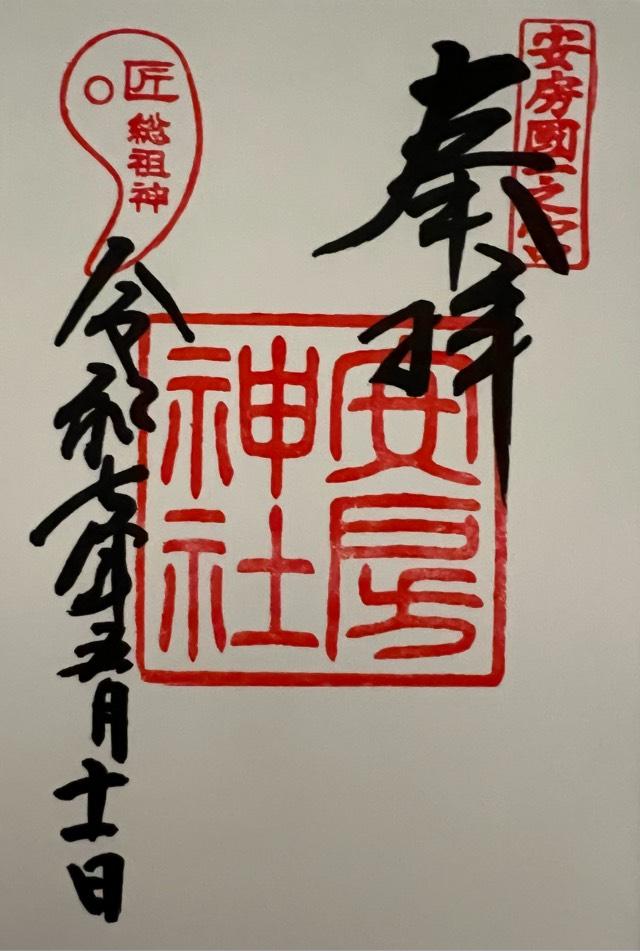 安房國一之宮
奉拝
安房
神社
匠
総祖神
令和七年五月十一日